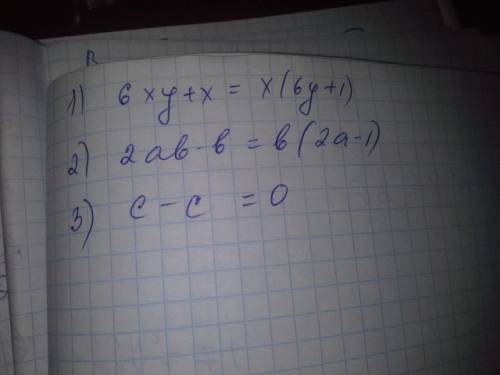 1) 6xy+x = x(6y+1)
2) 2ab-b = b(2a-1)
3) c-c = 0